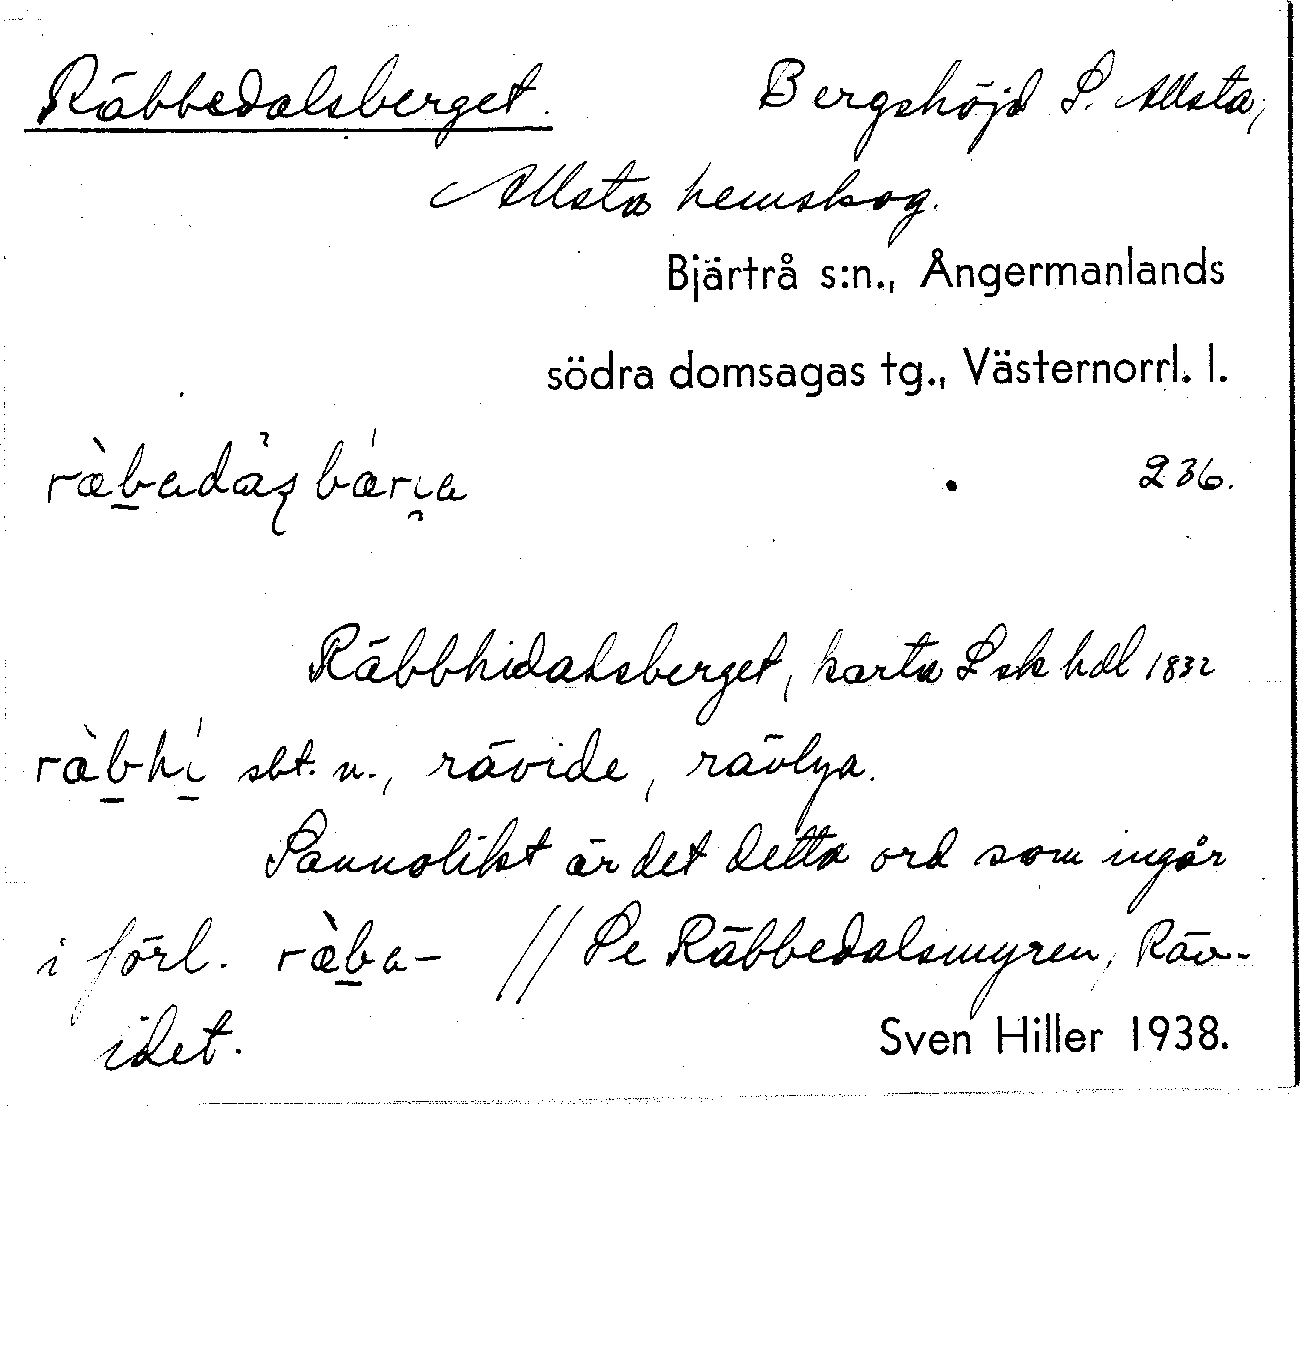 Räbbedalsberget. Bergshöjd S. Allsta,
Allsta hemskog.
Bjärtrå s:n., Ångermanlands
södra domsagas tg., Västernorrl. l.
236.
Räbbhidalsberget, karta L sk hdl 1832
sbt. n., rävide, rävlya.
Sannolikt är det detta ord som ingår
i förl. ræ̀ba- // Se Räbbedalsmyren, Räv-
idet.
Sven Hiller 1938.